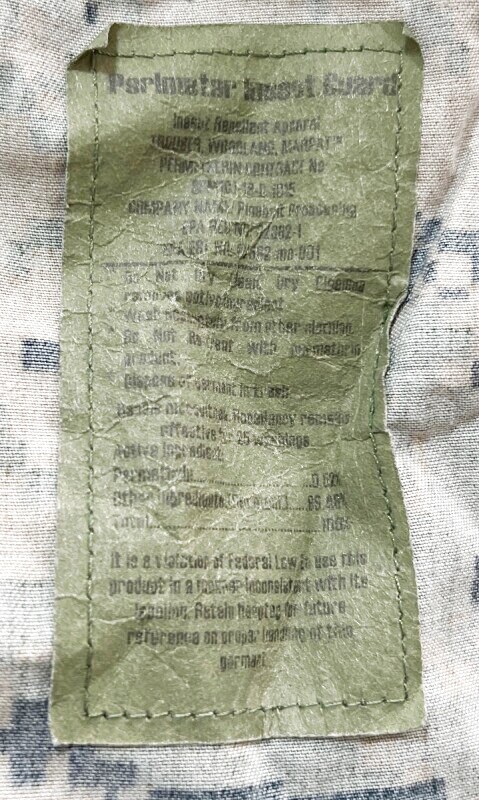 Perimeter Insect Guard
Insect Repellent Apparel
TROUSER, WOODLAND, MARPAT
PERMETHRIN CONTRACT No
COMPANY NAME: Pinebelt Processing
EPA REG NO.
EPA EST NO.
Do Not Dry Clean. Dry Cleaning
removes active ingredient
Wash separately from other clothing.
Do Not Retreat with permethrin
product.
Dispose of garment in trash
Retain Repellency remains
effective for 25 washings
Active Ingredient:
Permethrin
Other Ingredients
Total 100%
It is a violation of Federal Law to use this
product in a manner inconsistent with its
labeling. Retain hangtag for future
reference on proper handling of this
garment.